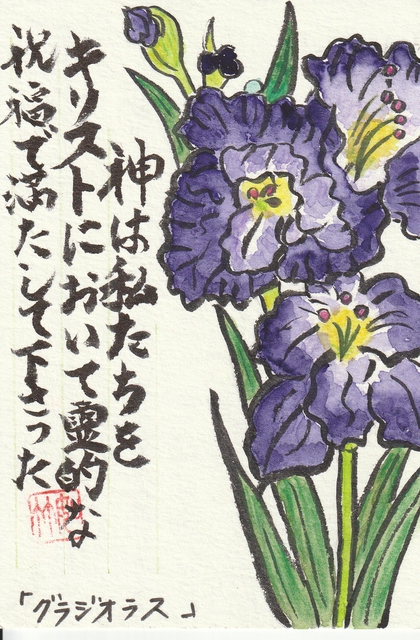 神は私たちを
キリストにおいて霊的な
祝福で満たして下さった
「グラジオラス」